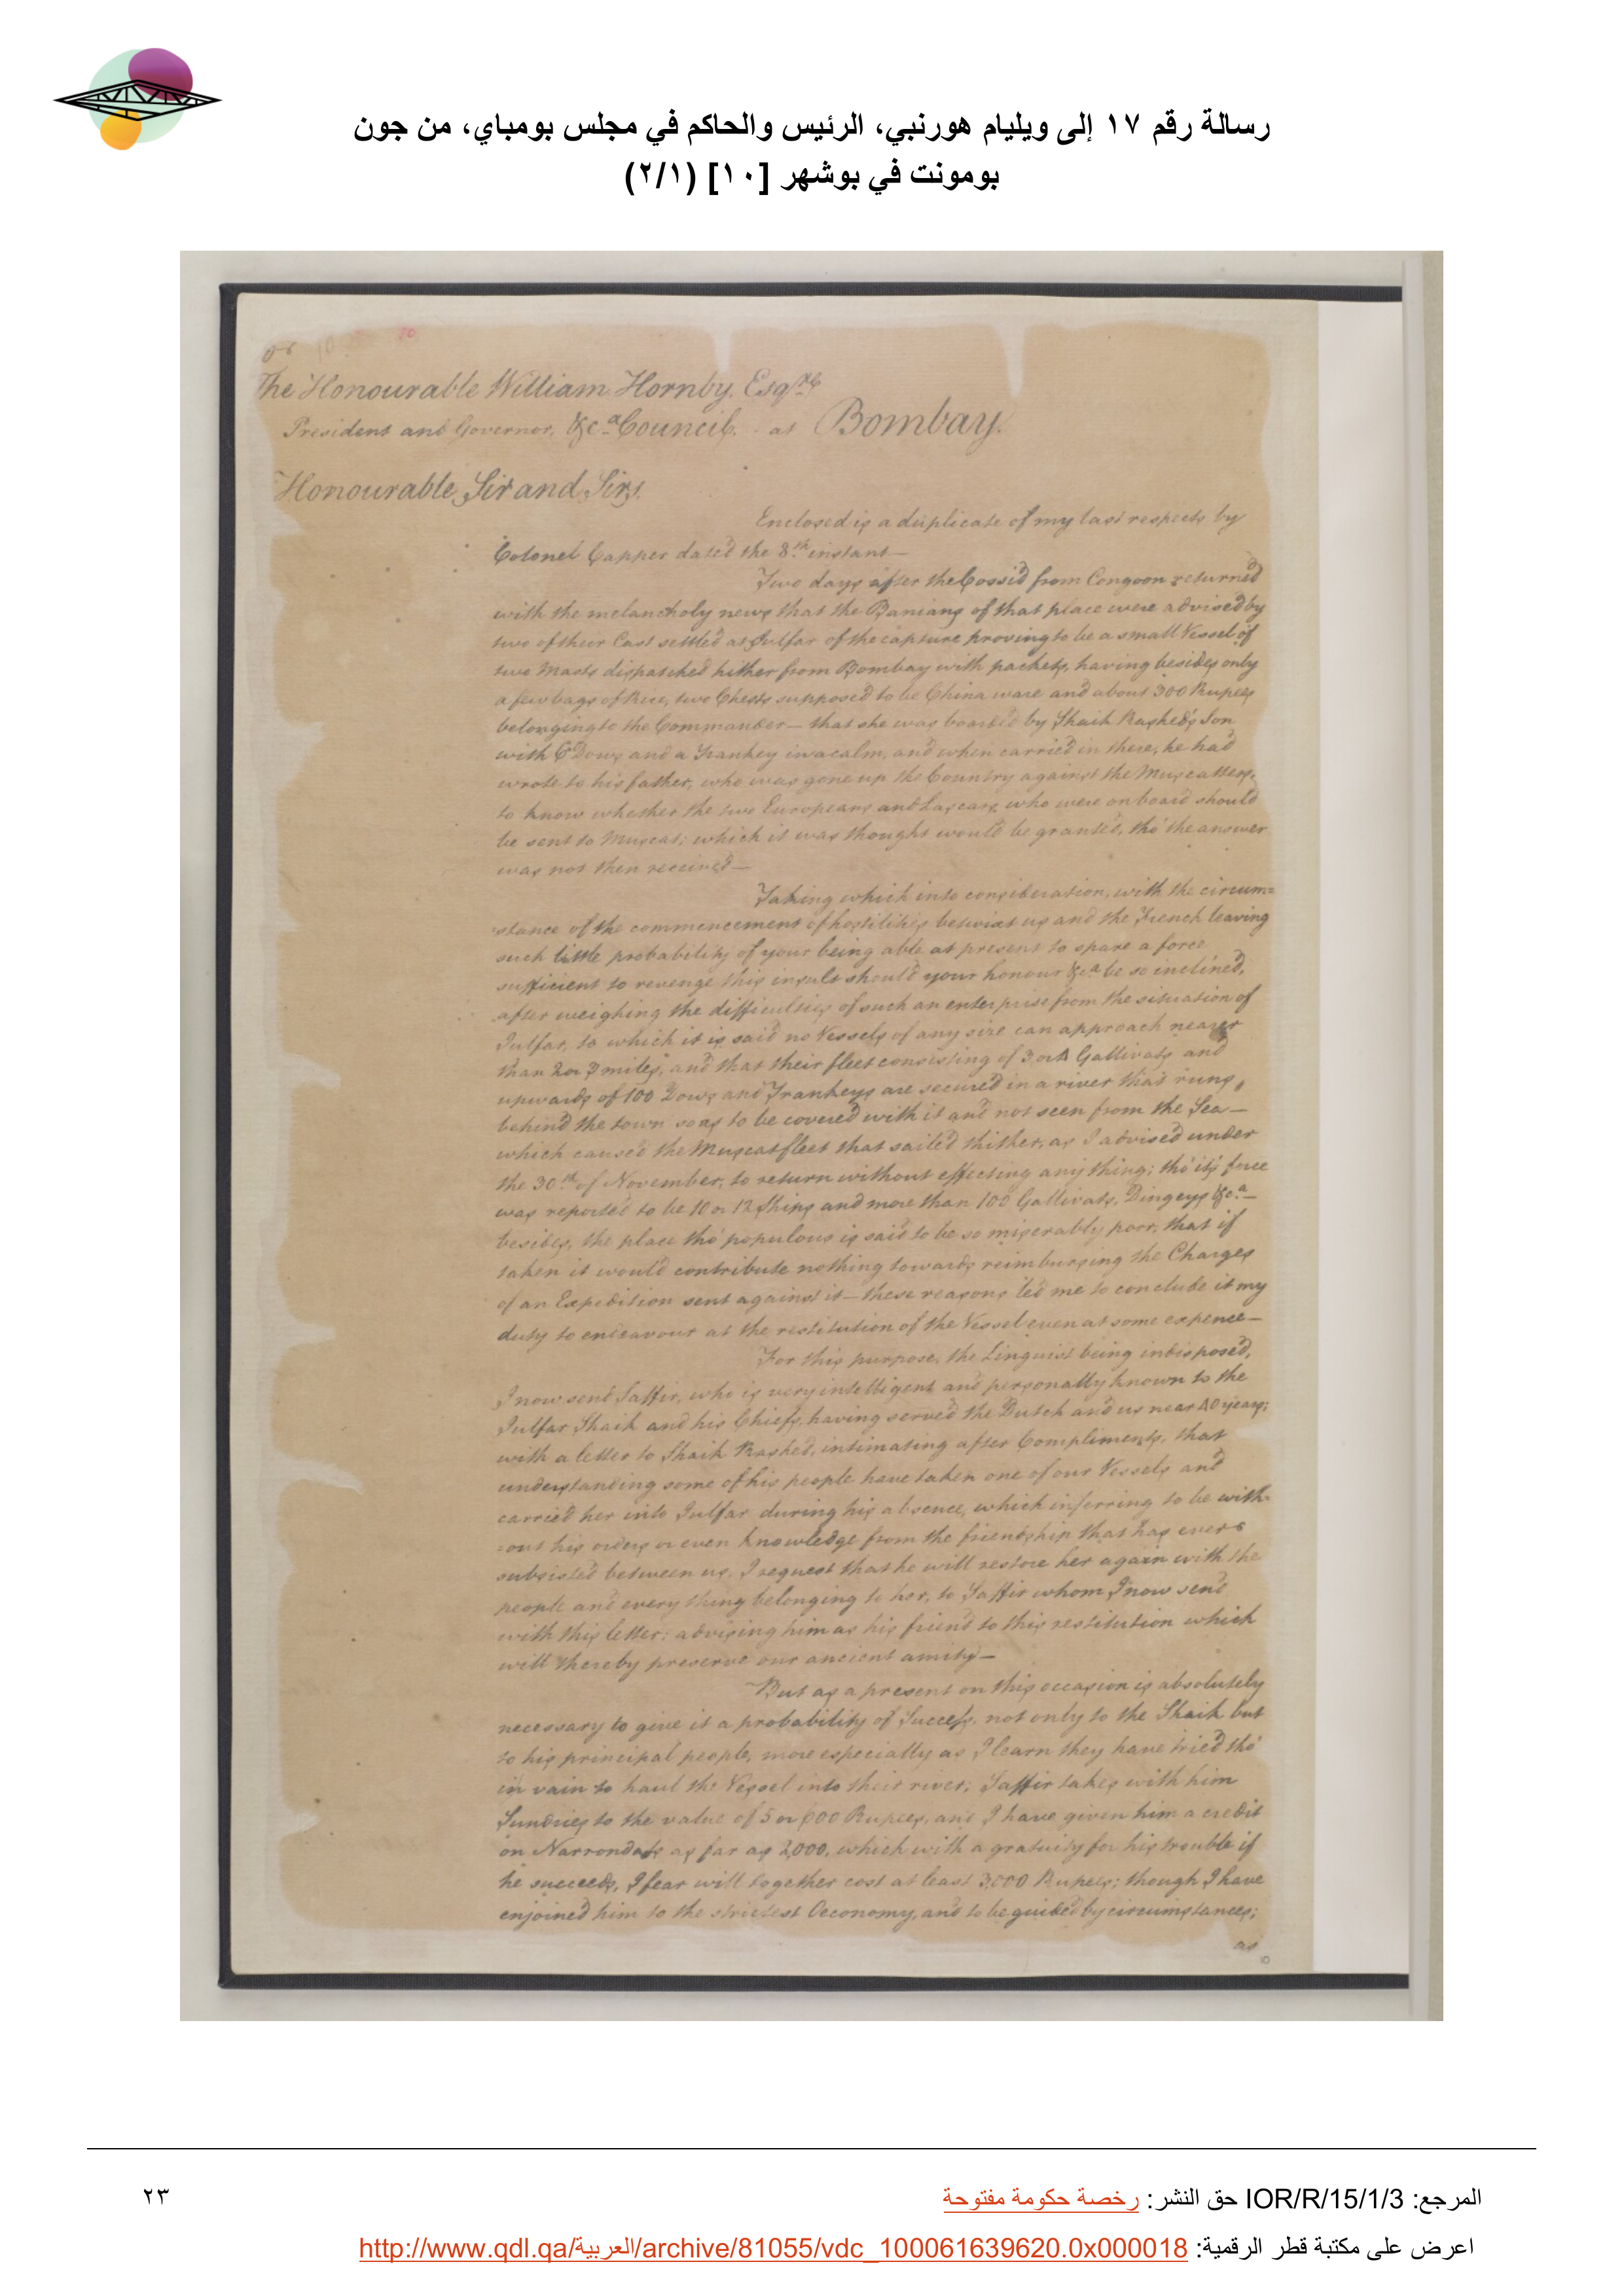 رسالة رقم ١٧ إلى ويليام هورنبي، الرئيس والحاكم في مجلس بومباي، من جون
بومونت في بوشهر [١٠] (٢/١)
10
The Honourable William Hornby, Esqre
President and Governor, &ca Council. at Bombay.
Honourable Sir and Sirs.
Enclosed is a duplicate of my last respects by
Colonel Capper dated the 8th instant—
Two days after the Cossid from Congoon returned
with the melancholy news that the Banians of that place were advised by
two of their Cast settled at Julfar of the capture proving to be a small Vessel of
two Masts dispatched hither from Bombay with packets, having besides only
a few bags of Rice, two Chests supposed to be China ware and about 300 Rupees
belonging to the Commander— that she was boarded by Shaik Rashed's Son
with 6 Dows and a Trankey in a calm, and when carried in there, he had
wrote to his father, who was gone up the Country against the Muscatters,
to know whether the two Europeans and Lascars, who were on board should
be sent to Muscat; which it was thought would be granted, tho' the answer
was not then received—
Taking which into consideration, with the circum=
stance of the commencement of hostilities betwixt us and the French leaving
such little probability of your being able at present to spare a force
sufficient to revenge this insult should your honour &ca be so inclined,
after weighing the difficulties of such an enterprise from the situation of
Julfar, to which it is said no Vessels of any size can approach nearer
than 2 or 3 miles, and that their fleet consisting of 3 or 4 Gallivats and
upwards of 100 Dows and Trankeys are secured in a river that runs,
behind the town so as to be covered with it and not seen from the Sea—
which caused the Muscat fleet that sailed thither, as I advised under
the 30th of November, to return without effecting any thing; tho' its force
was reported to be 10 or 12 Ships and more than 100 Gallivats, Dingeys &ca—
besides, the place tho' populous is said to be so miserably poor, that if
taken it would contribute nothing towards reimbursing the Charges
of an Expedition sent against it— these reasons led me to conclude it my
duty to endeavour at the restitution of the Vessel even at some expence—
For this purpose, the Linguist being indisposed,
I now send Saffir, who is very intelligent and personally known to the
Julfar Shaik and his Chiefs, having served the Dutch and us near 40 years;
with a letter to Shaik Rashed, intimating after Compliments, that
understanding some of his people have taken one of our Vessels and
carried her into Julfar during his absence, which inferring to be with=
out his orders or even knowledge from the friendship that has ever
subsisted between us, I request that he will restore her again with the
people and every thing belonging to her, to Saffir whom I now send
with this letter; advising him as his friend to this restitution which
will thereby preserve our ancient amity—
But as a present on this occasion is absolutely
necessary to give it a probability of Success, not only to the Shaik but
to his principal people, more especially as I learn they have tried tho'
in vain to haul the Vessel into their river; Saffir takes with him
Sundries to the value of 5 or 600 Rupees, and I have given him a credit
on Narrondass as far as 2,000, which with a gratuity for his trouble if
he succeeds, I fear will together cost at least 3,000 Rupees; though I have
enjoined him to the strictest Oeconomy, and to be guided by circumstances;
as
10
المرجع: IOR/R/15/1/3 حق النشر: رخصة حكومة مفتوحة
٢٣
اعرض على مكتبة قطر الرقمية: http://www.qdl.qa/العربية/archive/81055/vdc_100061639620.0x000018